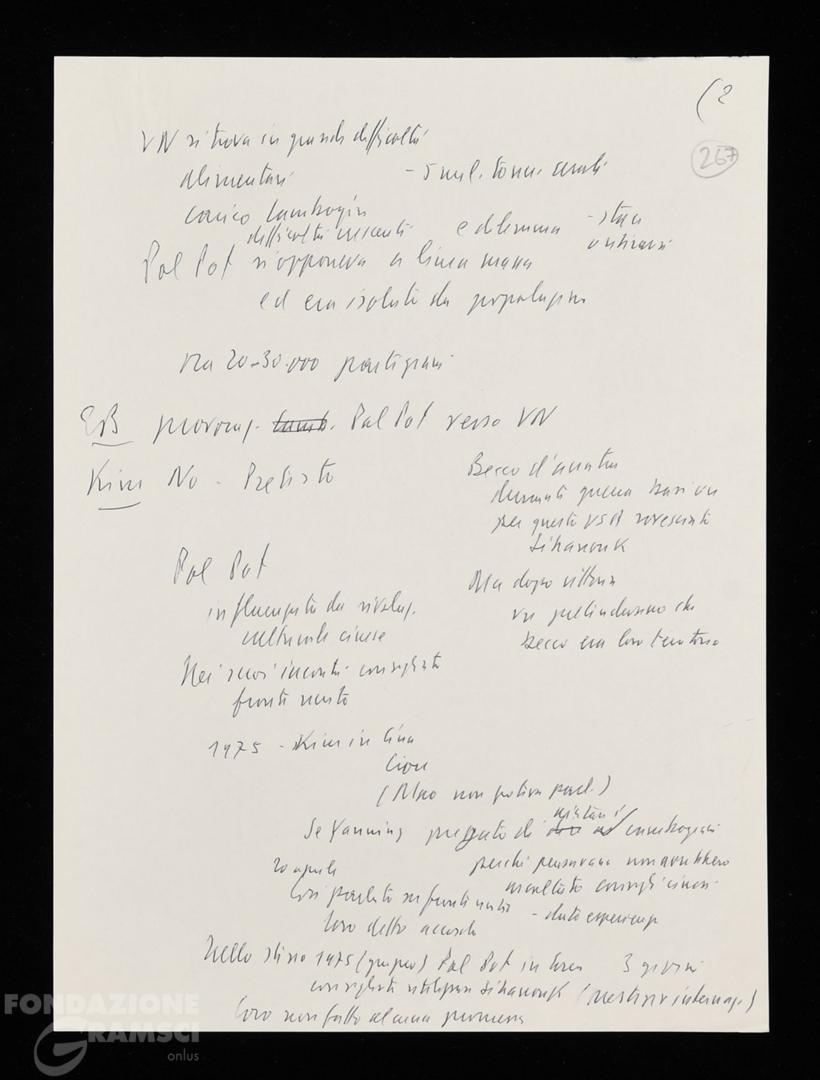 (2
267
VN si trova in grandi difficoltà
alimentari - 5 mil. tonn. cereali
carico Cambogia
difficoltà crescenti e dilemma - stare
o ritirarsi
Pol Pot si opponeva a linea massa
ed era isolato da popolazione
ma 20-30.000 partigiani
EB provocaz. Pol Pot verso VN
Kim No - Pretesto
Becco d'anatra
durante guerra basi VN
per questo USA rovesciato
Sihanouk
Ma dopo vittoria
VN pretendevano che
Becco era loro territorio
Pol Pot
influenzato da rivoluz.
culturale cinese
Nei suoi incontri consigliato
fronte unito
1975 - Kim in Cina
Ciou
(Mao non poteva parl.)
Se Yanning pregato di aiutare i cambogiani
perché pensavano non avrebbero
ascoltato consigli cinesi
20 aprile
Così parlato su fronte unito - dato esperienze
loro detto accordo
Nello stesso 1975 (giugno) Pol Pot in Corea 3 giorni
consigliato utilizzare Sihanouk (prestigio internaz.)
loro non fatto alcuna promessa
FONDAZIONE
GRAMSCI
onlus